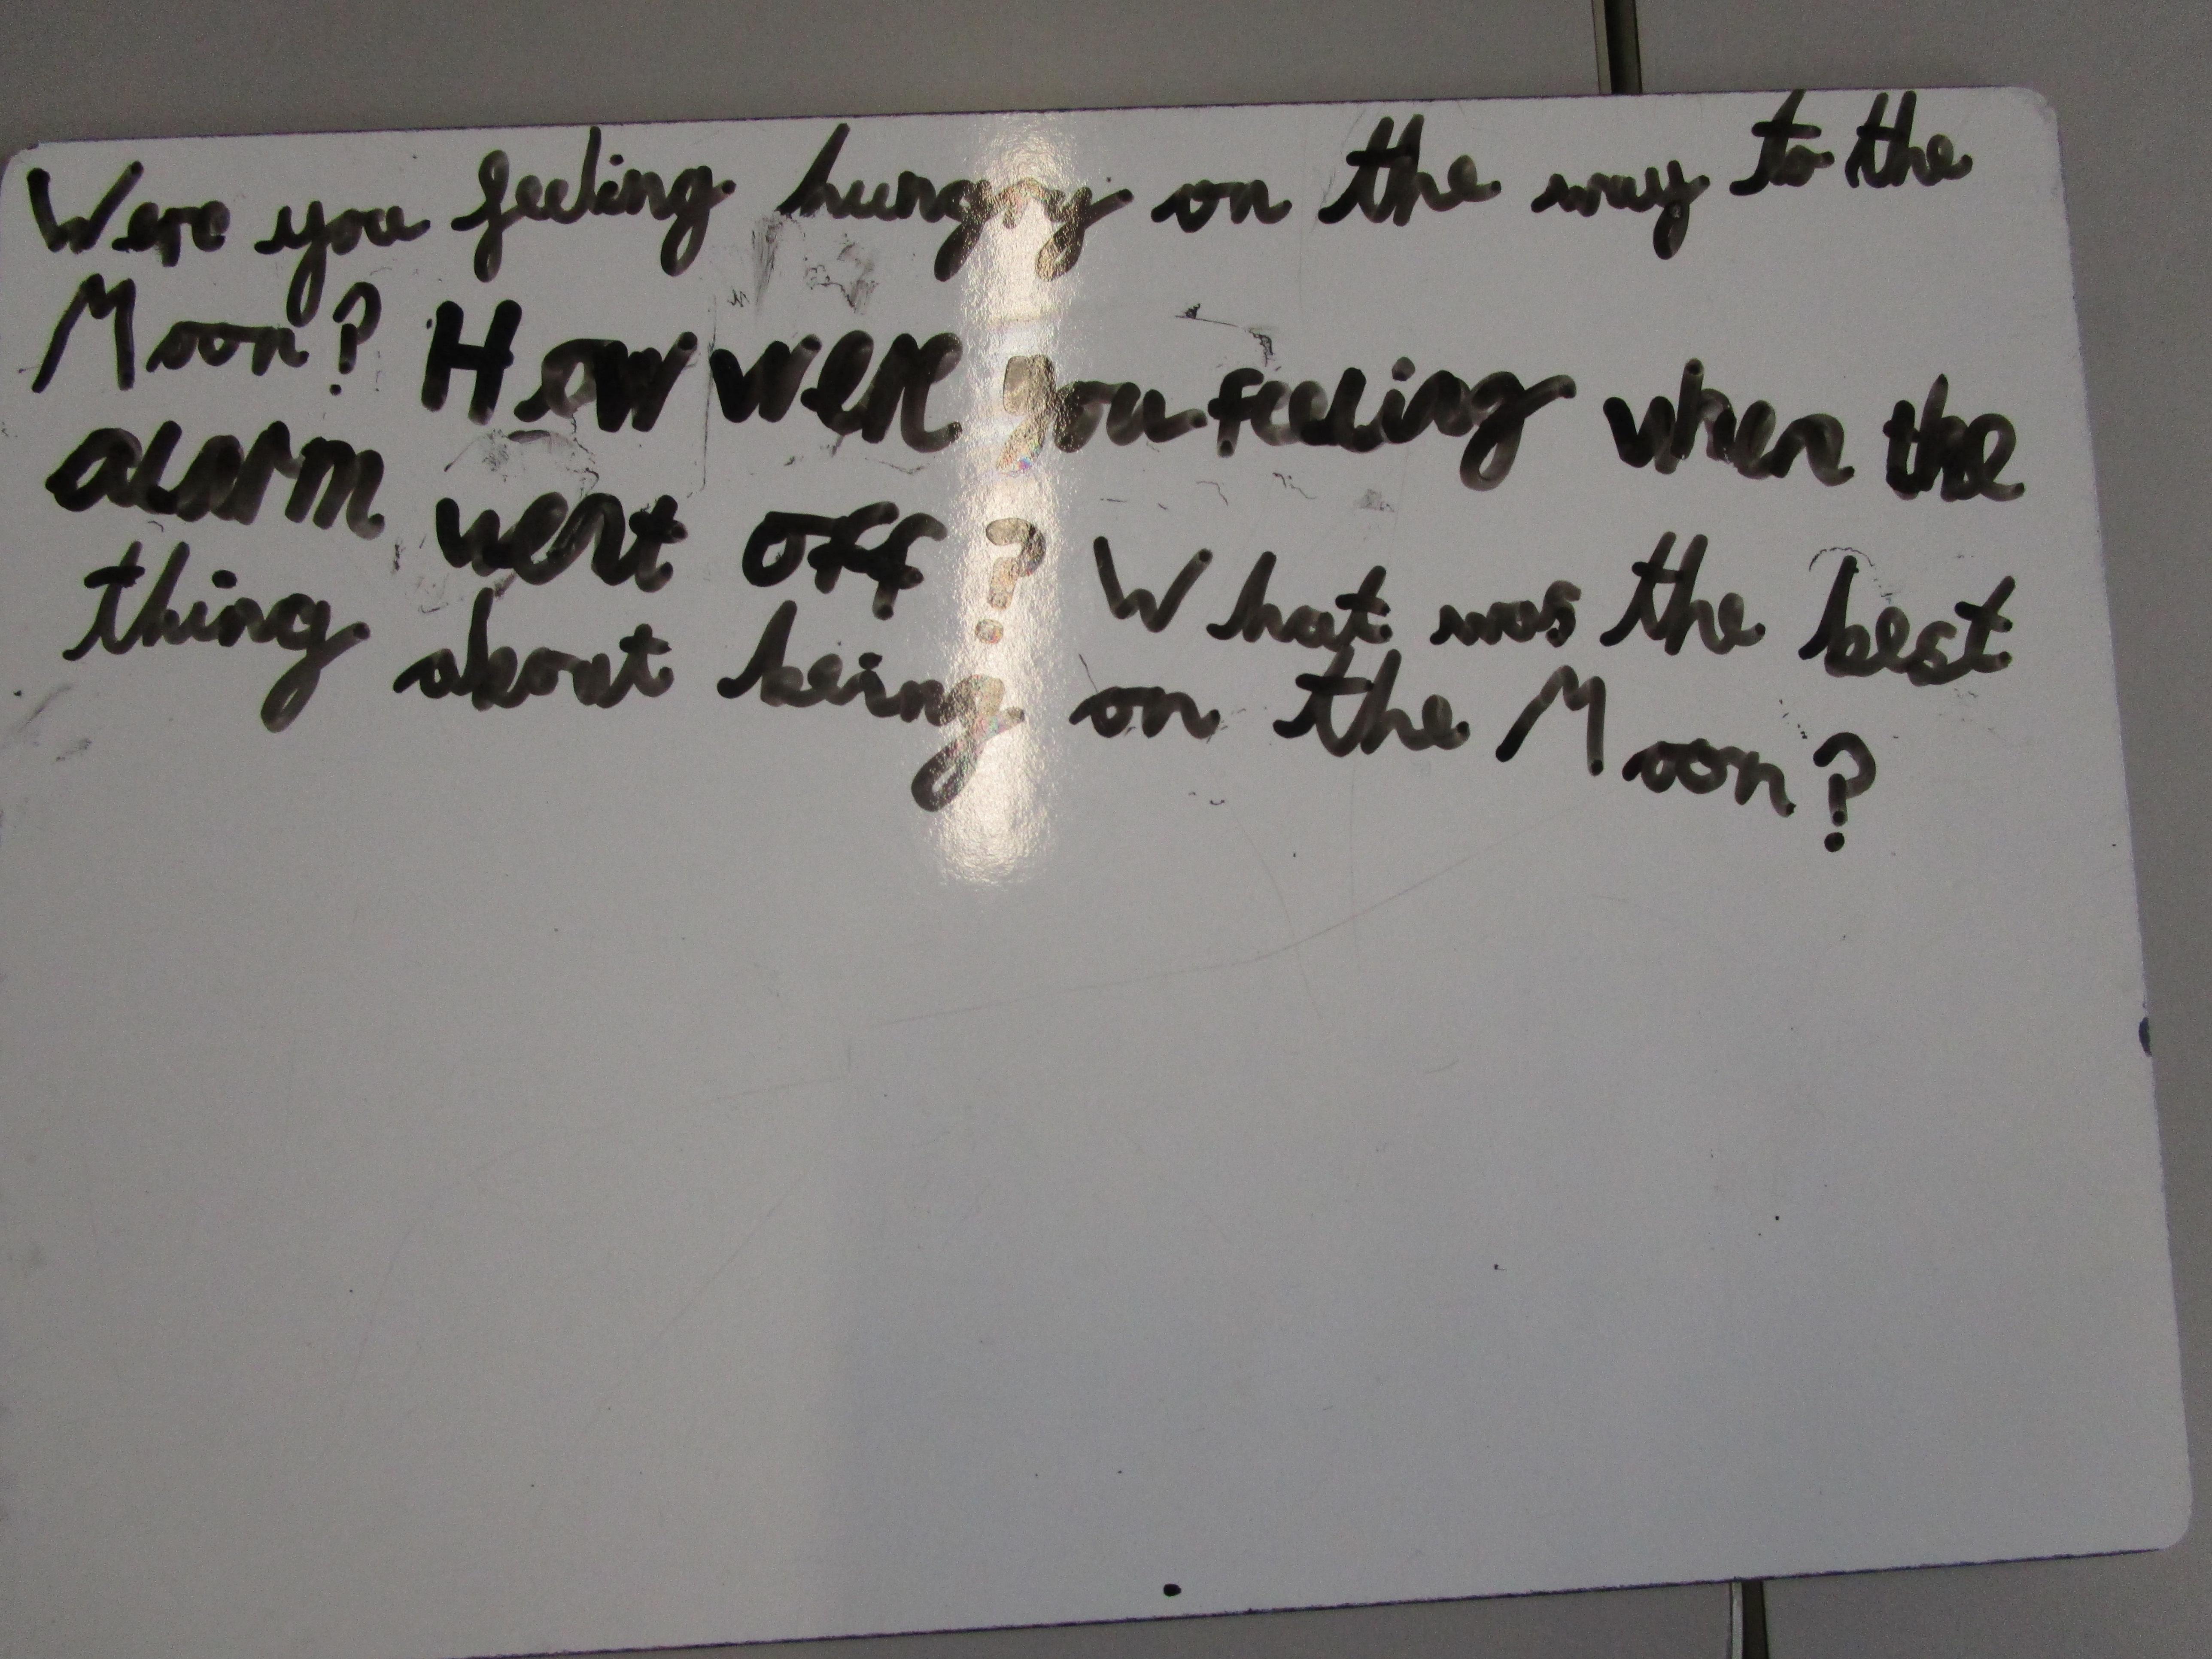 Were you feeling hungry on the way to the
Moon? How were you feeling when the
alarm went off? What was the best
thing about being on the Moon?